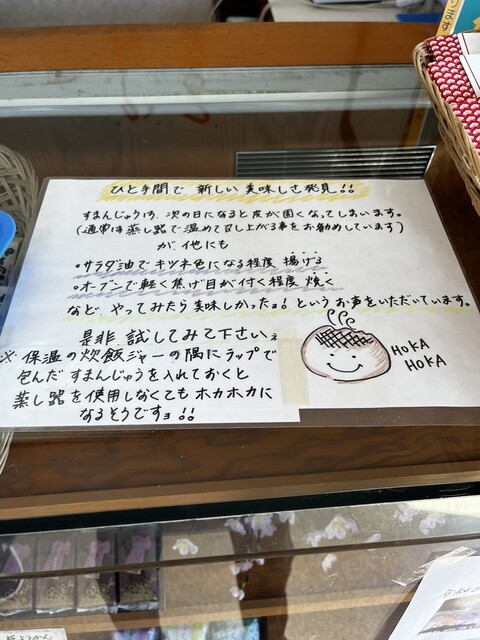 ひと手間で 新しい 美味しさ発見!!
すまんじゅうは、次の日になると皮が固くなってしまいます。
(通常は蒸し器で温めて召し上がる事をお勧めしています)
が 他にも
・サラダ油でキツネ色になる程度 揚げる
・オーブンで軽く焦げ目が付く程度 焼く
など、やってみたら美味しかったョ!というお声をいただいています。
是非 試してみて下さい。
※ 保温の炊飯ジャーの隅にラップで
包んだ すまんじゅうを入れておくと
蒸し器を使用しなくても ホカホカに
なるそうですョ!!
HOKA
HOKA